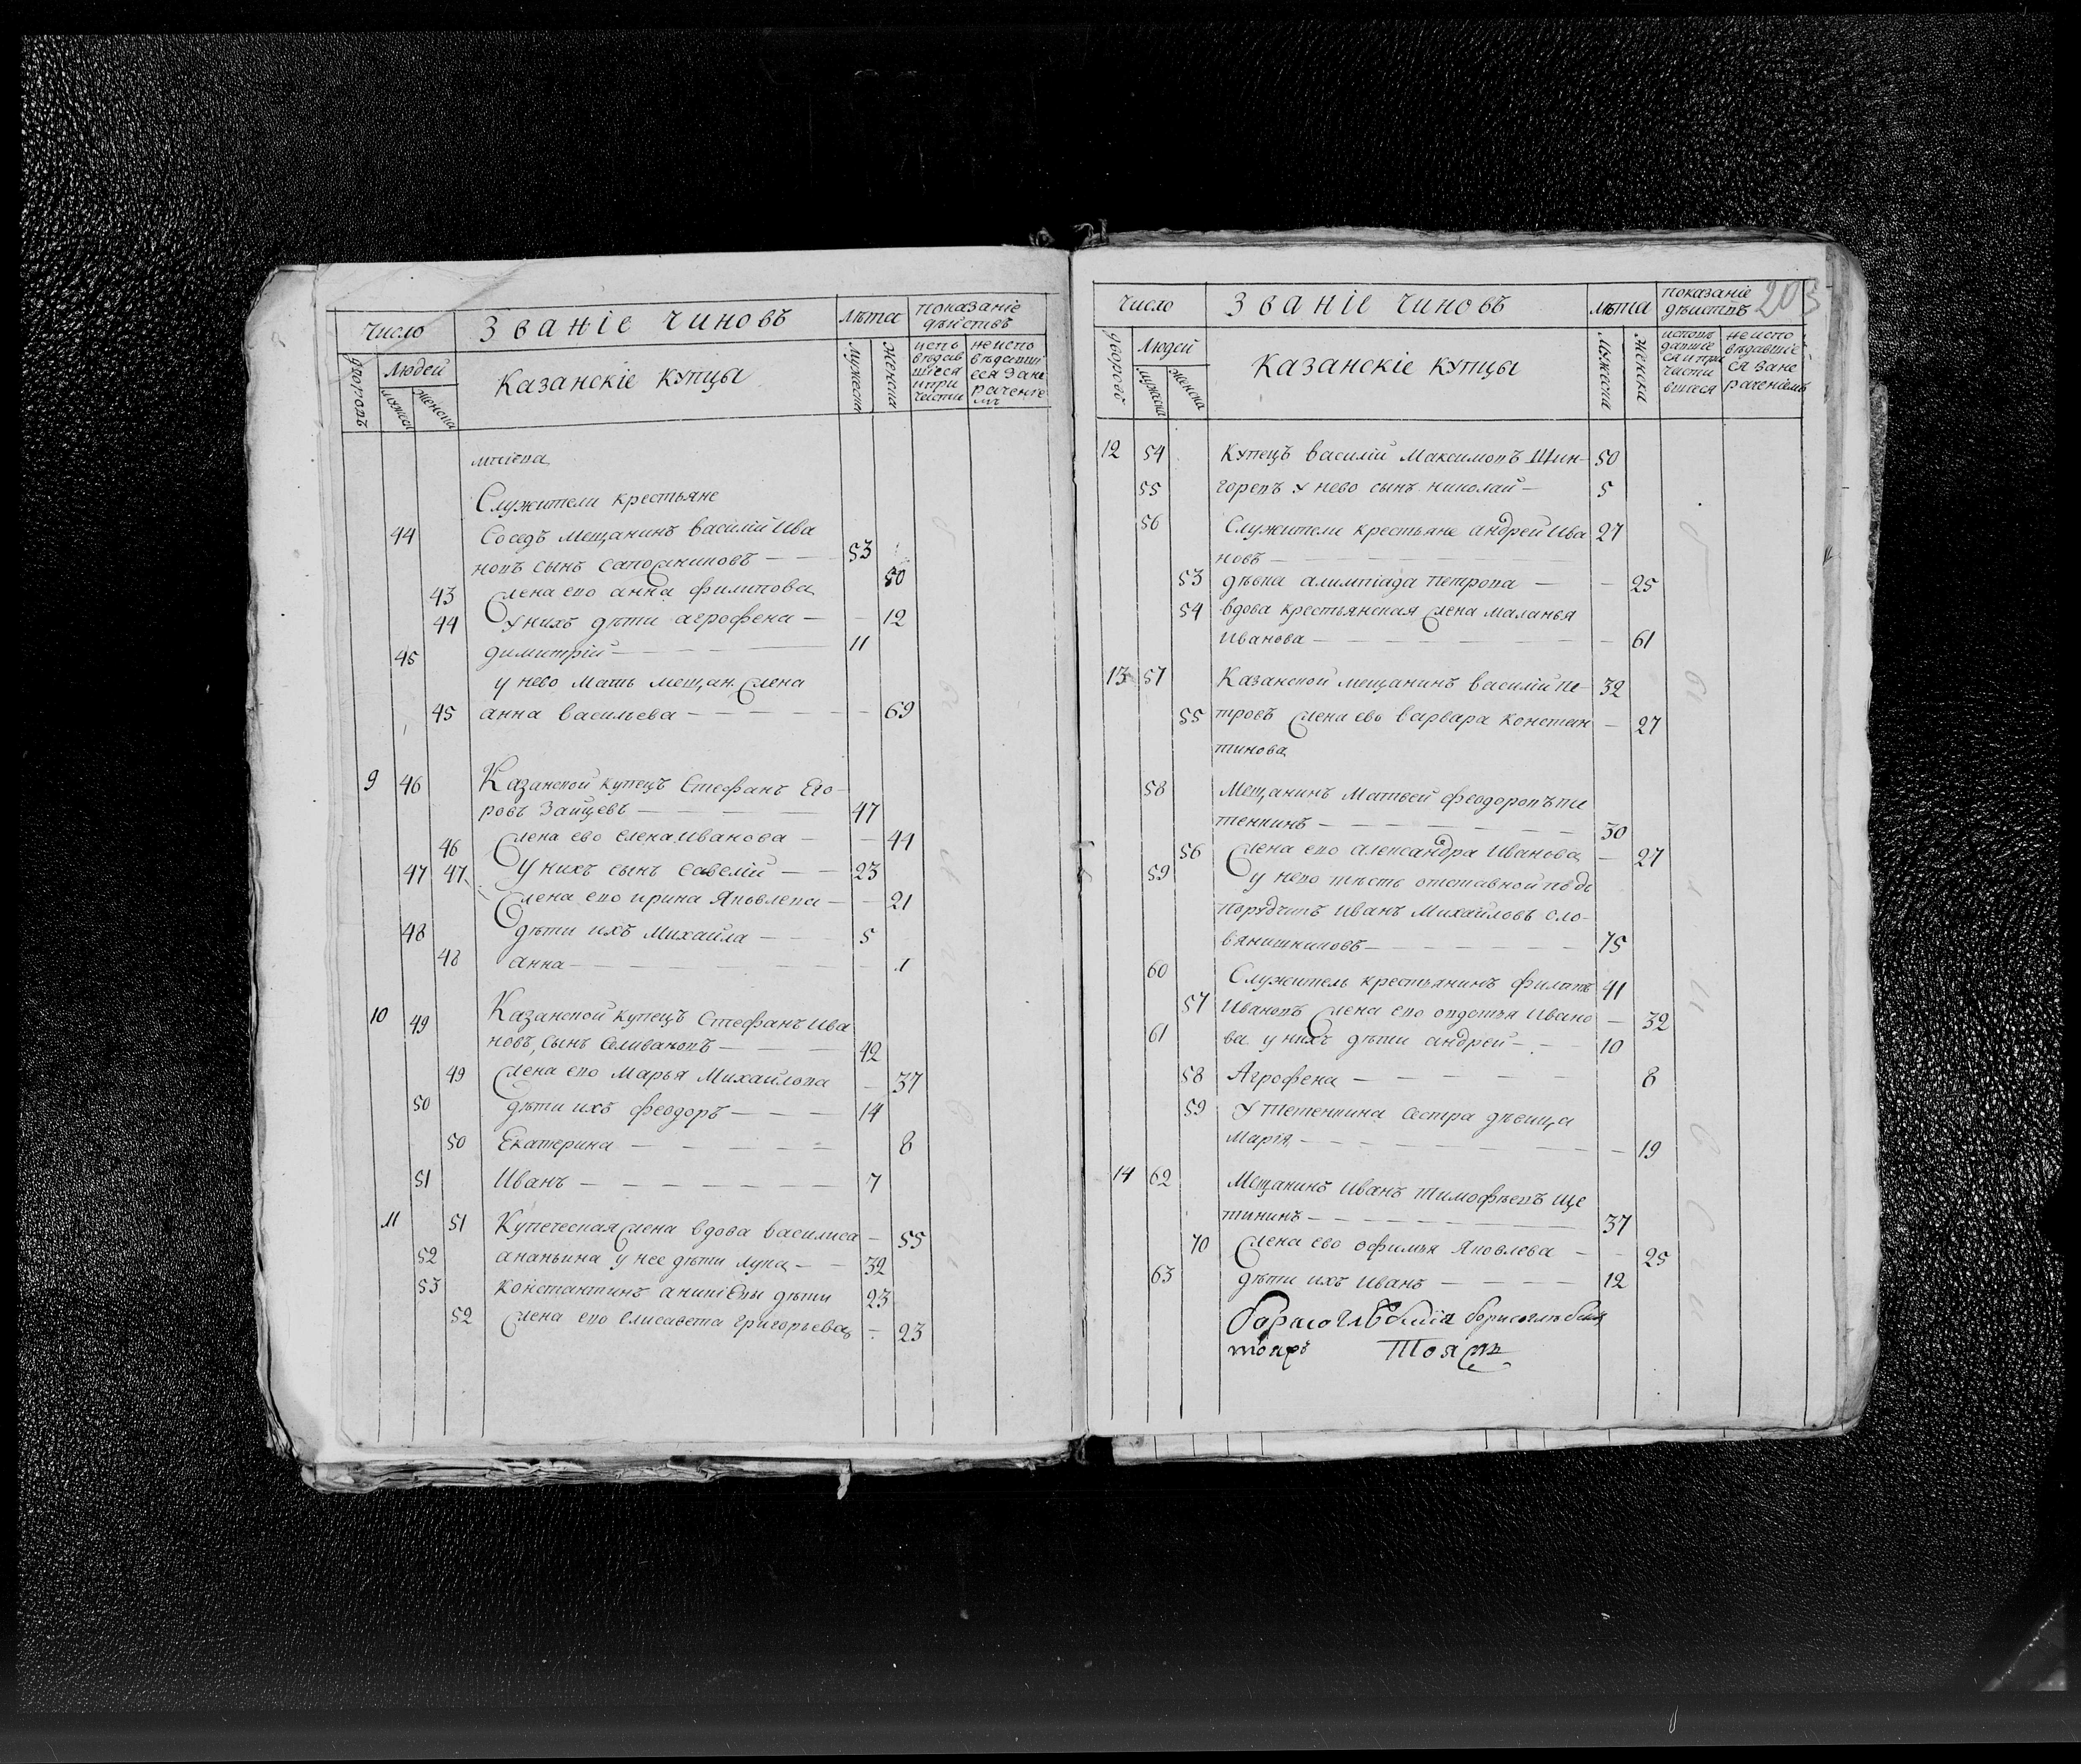 Число Званіе чиновъ лѣта показаніе
дѣйствъ
дворовъ Людей мужеска женска Казанскіе купцы мужеска женска испо
вѣдав
шіеся
ипри
неиспо
вѣдавші
еся зане
раченіе
мъ
Служители крестьяне
44 Соседъ мещанинъ василій ива
новъ сынъ сапожниковъ — 53
43 жена ево анна филипова 50
44 У нихъ дѣти агрофена — 12
45 димитрій — 11
у нево мать мещан. жена
45 анна васильева — 69
9 46 Казанской купецъ Стефанъ Его-
ровъ Зайцевъ — 47
46 жена ево елена иванова — 44
47 47 У нихъ сынъ савелій — 23
жена ево ирина Яковлева — 21
48 дѣти ихъ Михаила — 5
48 анна — 1
10 49 Казанской купецъ Стефанъ ива
новъ, сынъ Селивановъ — 42
49 жена ево Марья Михаилова — 37
50 дѣти ихъ феодоръ — 14
50 Екатерина — 8
51 Иванъ — 7
11 51 Купеческая жена вдова василиса — 55
52 ананьина у нее дѣти лука — 32
53 константинъ дѣти 23
52 жена ево Елисавета григорьева — 23
Число Званіе чиновъ лѣта показаніе
дѣиствъ 203
дворовъ Людей мужеска женска Казанскіе купцы мужеска женска исповѣ
давшіе
ся и при
части
вшіеся
неиспо
вѣдавшіе
ся зане
раченіемъ
12 54 Купецъ василій Максимовъ Щин- 50
55 горевъ у нево сынъ николай — 5
56 Служители крестьяне андрей ива 27
новъ —
53 дѣвка алимпіада петрова — 25
54 вдова крестьянская жена маланья
иванова — 61
13 57 Казанской мещанинъ василій пе- 32
55 тровъ жена ево варвара констан — 27
тинова
58 Мещанинъ Матвей феодоровъ те
тенкинъ — 30
56 жена ево александра иванова — 27
59 у нево тѣсть отставной подъ
порутчикъ иванъ Михаиловъ сло-
вянишниковъ — 75
60 Служитель крестьянинъ филипъ 41
57 ивановъ жена ево овдотья ивано — 32
61 ва у нихъ дѣти андрей — 10
58 Агрофена — 8
59 У Тетенкина сестра дѣвица
марія — 19
14 62 Мещанинъ иванъ тимофѣевъ ще
тининъ — 37
70 жена ево офимья Яковлева — 25
63 дѣти ихъ иванъ — 12